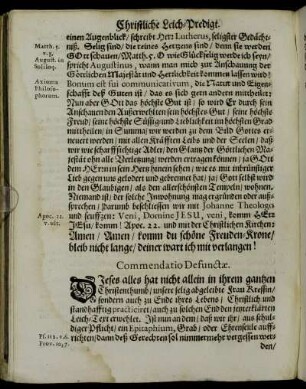 Christliche Leich-Predigt.
einen Augenblick/ schreibt Herr Lutherus, seligster Gedächt-
Matth. 5.
v. 8.
nüß. Selig sind/ die reines Hertzens sind/ denn sie werden
August. in
Soliloq.
GOtt schauen/ Matth. 5. O wie Glückselig werde ich seyn/
spricht Augustinus, wann man mich zur Anschauung der
Göttlichen Majestät und Herrlichkeit kommen lassen wird!
Axioma
Philoso-
phorum.
Bonum est sui communicativum, die Natur und Eigen-
schafft deß Guten ist/ daß es sich gern andern mittheilet:
Nun aber GOtt das höchste Gut ist/ so wird Er durch sein
Anschauen den Außerwehlten sein höchstes Gut/ seine höchste
Freud/ seine höchste Süssigkeit und Liebligkeit im höchsten Grad
mittheilen/ in summa, wir werden zu dem Bild Gottes er-
neuert werden/ mit allen Kräfften Leibs und der Seelen/ daß
wir/ wie scharffsichtige Adler/ den Glantz der Göttlichen Ma-
jestät ohn alle Verletzung/ werden ertragen können/ ja GOtt
dem HErrn in sein Hertz hinein sehen/ wie es mit inbrünstiger
Lieb gegen uns gelodert und gebrennet hat/ ja/ Gott selbst wird
in den Glaubigen/ als den allerschönsten Tempeln/ wohnen.
Niemand ist/ der solche Inwohnung mag ergründen oder auß-
sprechen/ darumb beschliessen wir mit Johanne Theologo
Apoc. 22.
v. ult.
und seufftzen: Veni, Domine JESU, veni, komm HErr
JEsu/ komm/ Apoc. 22. und mit der Christlichen Kirchen:
Amen/ Amen/ komm du schöne Freuden-Krone/
bleib nicht lange/ deiner wart ich mit verlangen!
Commendatio Defunctæ.
DIeses alles hat nicht allein in ihrem gantzen
Christenthumb/ unsere selig abgeleibte Frau
sondern auch zu Ende ihres Lebens/ Christlich und
standhafftig practiciret/ auch zu solchem End den tenerklärten
Leich-Text erwehlet. Ist nun an dem/ daß wir ihr/ aus schul-
diger Pflicht/ ein Epitaphium, Grab- oder Ehrenseule auff-
richten/ dann deß Gerechten sol nimmermehr vergessen wer-
den/